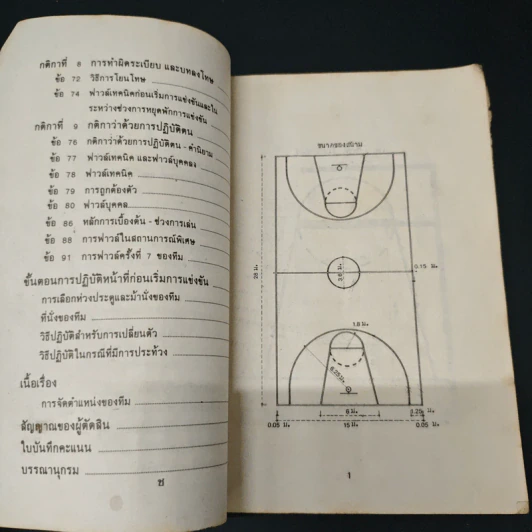 กติกาที่ 8 การทำผิดระเบียบ และบทลงโทษ
ข้อ 72 วิธีการโยนโทษ
ข้อ 74 ฟาวล์เทคนิคก่อนเริ่มการแข่งขันและใน
ระหว่างช่วงการหยุดพักการแข่งขัน
กติกาที่ 9 กติกาว่าด้วยการปฏิบัติตน
ข้อ 76 กติกาว่าด้วยการปฏิบัติตน - คำนิยาม
ข้อ 77 ฟาวล์เทคนิค และฟาวล์บุคคล
ข้อ 78 ฟาวล์เทคนิค
ข้อ 79 การถูกต้องตัว
ข้อ 80 ฟาวล์บุคคล
ข้อ 86 หลักการเบื้องต้น - ช่วงการเล่น
ข้อ 88 การฟาวล์ในสถานการณ์พิเศษ
ข้อ 91 การฟาวล์ครั้งที่ 7 ของทีม
ขั้นตอนการปฏิบัติหน้าที่ก่อนเริ่มการแข่งขัน
การเลือกห่วงประตูและม้านั่งของทีม
ที่นั่งของทีม
วิธีปฏิบัติสำหรับการเปลี่ยนตัว
วิธีปฏิบัติในกรณีที่มีการประท้วง
เนื้อเรื่อง
การจัดตำแหน่งของทีม
สัญญาณของผู้ตัดสิน
ใบบันทึกคะแนน
บรรณานุกรม
ช
ขนาดของสนาม
28 ม.
3.6 ม.
0.15 ม.
1.8 ม.
6.25 ม.
6 ม.
1.25 ม.
0.05 ม.
15 ม.
0.05 ม.
1